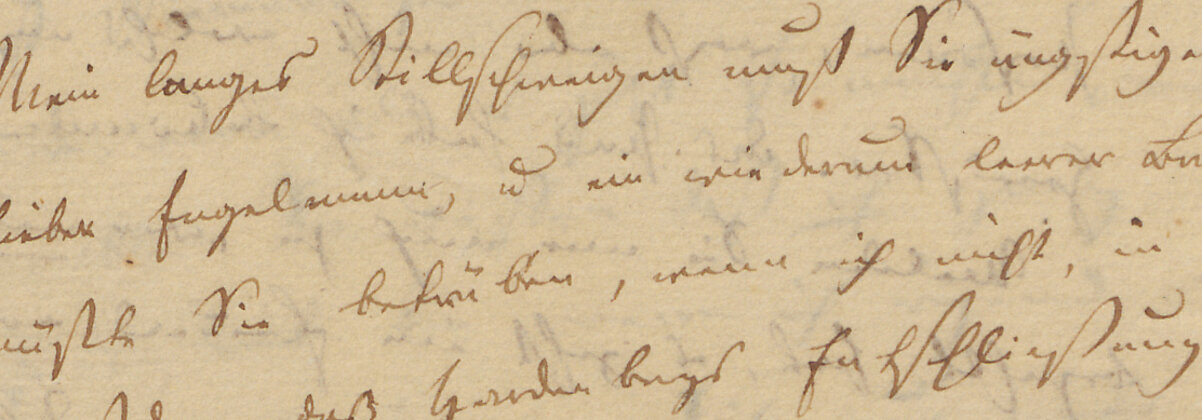 Mein langes Stillschweigen muß Sie ängstige
lieber Engelmann, u ein wiederum leerer Br
müßte Sie betrüben, wenn ich nicht, in
daß Hardenbergs Entschließung